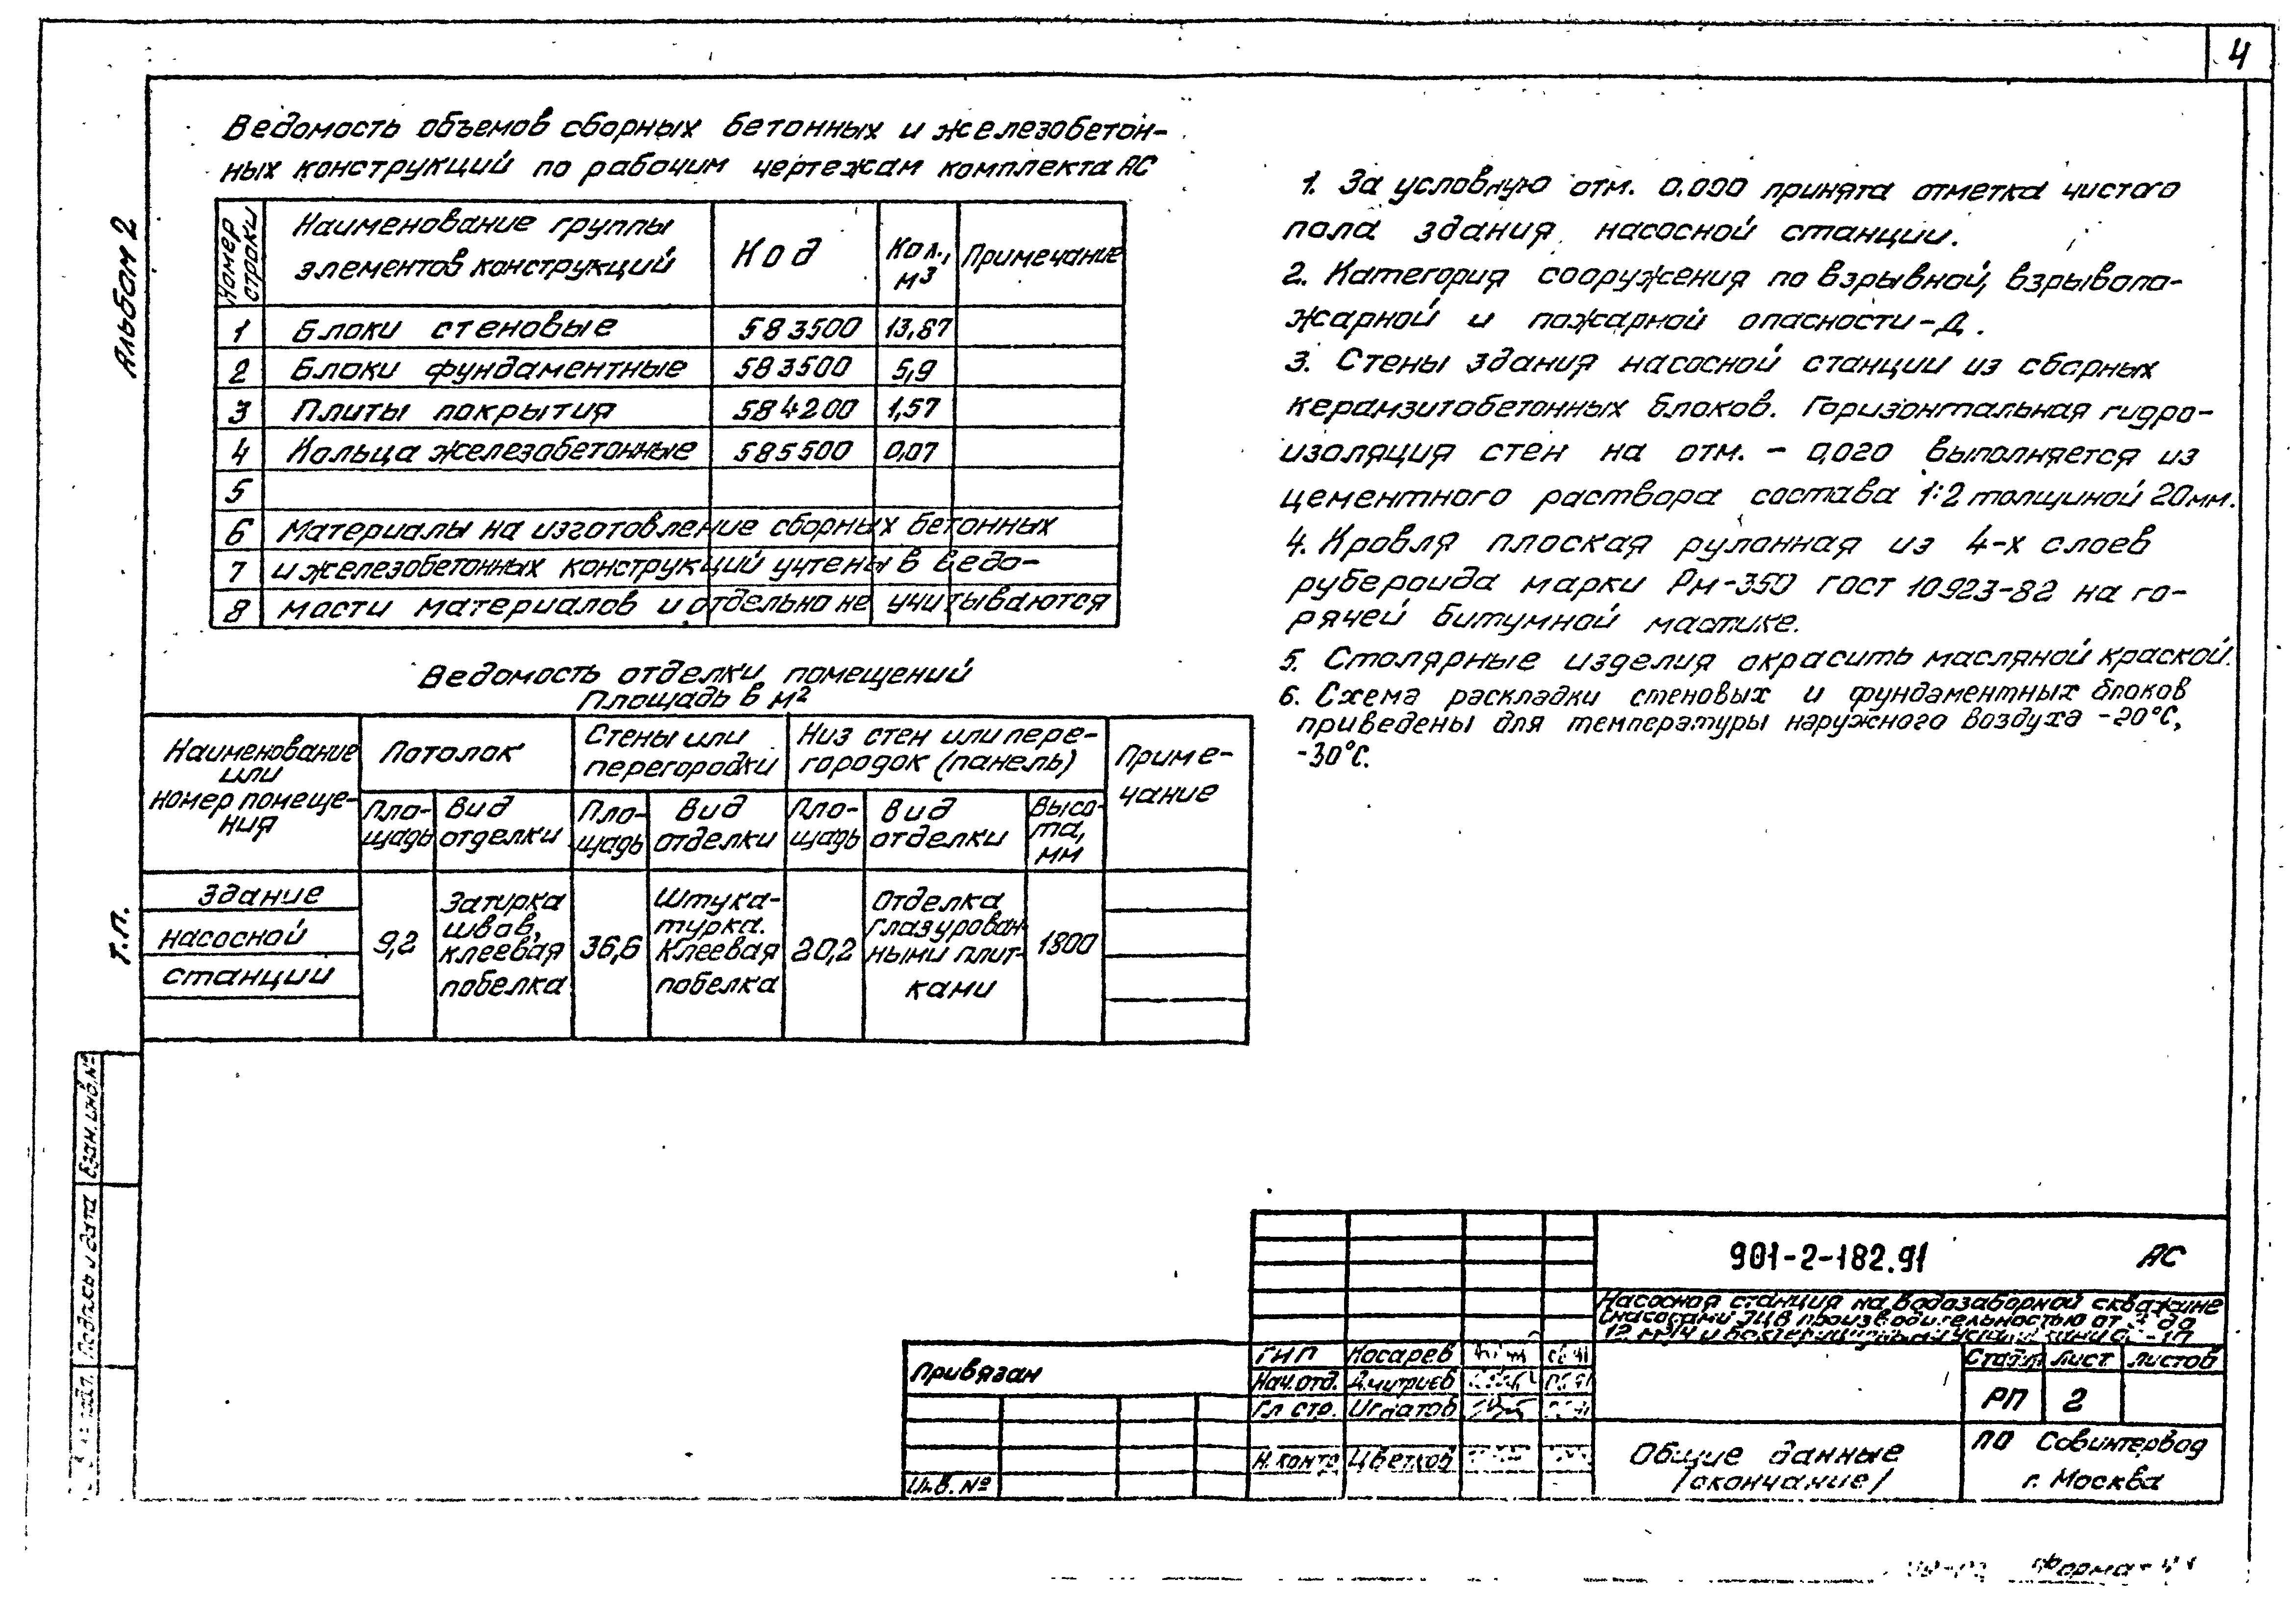 4
Альбом 2
Т.П.
Ведомость объемов сборных бетонных и железобетон-
ных конструкций по рабочим чертежам комплекта АС
Номер строки
Наименование группы элементов конструкций
Код
Кол., м³
Примечание
1 Блоки стеновые 583500 13,87
2 Блоки фундаментные 583500 5,9
3 Плиты покрытия 584200 1,57
4 Кольца железобетонные 585500 0,07
5
6 Материалы на изготовление сборных бетонных
7 и железобетонных конструкций учтены в ведо-
8 мости материалов и отдельно не учитываются
Ведомость отделки помещений
Площадь в м²
Наименование или номер помеще-ния
Потолок
Стены или перегородки
Низ стен или пере-городок (панель)
Приме-чание
Пло-щадь
Вид отделки
Пло-щадь
Вид отделки
Пло-щадь
Вид отделки
Высо-та, мм
здание
насосной
станции
9,2
Затирка
швов,
клеевая
побелка
36,6
Штука-
турка.
Клеевая
побелка
20,2
Отделка
глазурован-
ными плит-
ками
1800
1. За условную отм. 0.000 принята отметка чистого
пола здания насосной станции.
2. Категория сооружения по взрывной, взрывопо-
жарной и пожарной опасности - Д.
3. Стены здания насосной станции из сборных
керамзитобетонных блоков. Горизонтальная гидро-
изоляция стен на отм. - 0,020 выполняется из
цементного раствора состава 1:2 толщиной 20мм.
4. Кровля плоская рулонная из 4-х слоев
рубероида марки Рм-350 гост 10923-82 на го-
рячей битумной мастике.
5. Столярные изделия окрасить масляной краской.
6. Схема раскладки стеновых и фундаментных блоков
приведены для температуры наружного воздуха -20°С,
-30°С.
Взам. инв. №
Подпись и дата
подл.
901-2-182.91 АС
Насосная станция на водозаборной скважине
с насосами ЭЦВ производительностью от до
12 м³/ч и бактерицидными
Привязан
Инв. №
ГИП Косарев
Нач. отд. Дмитриев
Гл. стр. Игнатов
Н. контр. Цветков
Общие данные
/окончание/
Стадия Лист Листов
РП 2
ПО Совинтервод
г. Москва
Формат